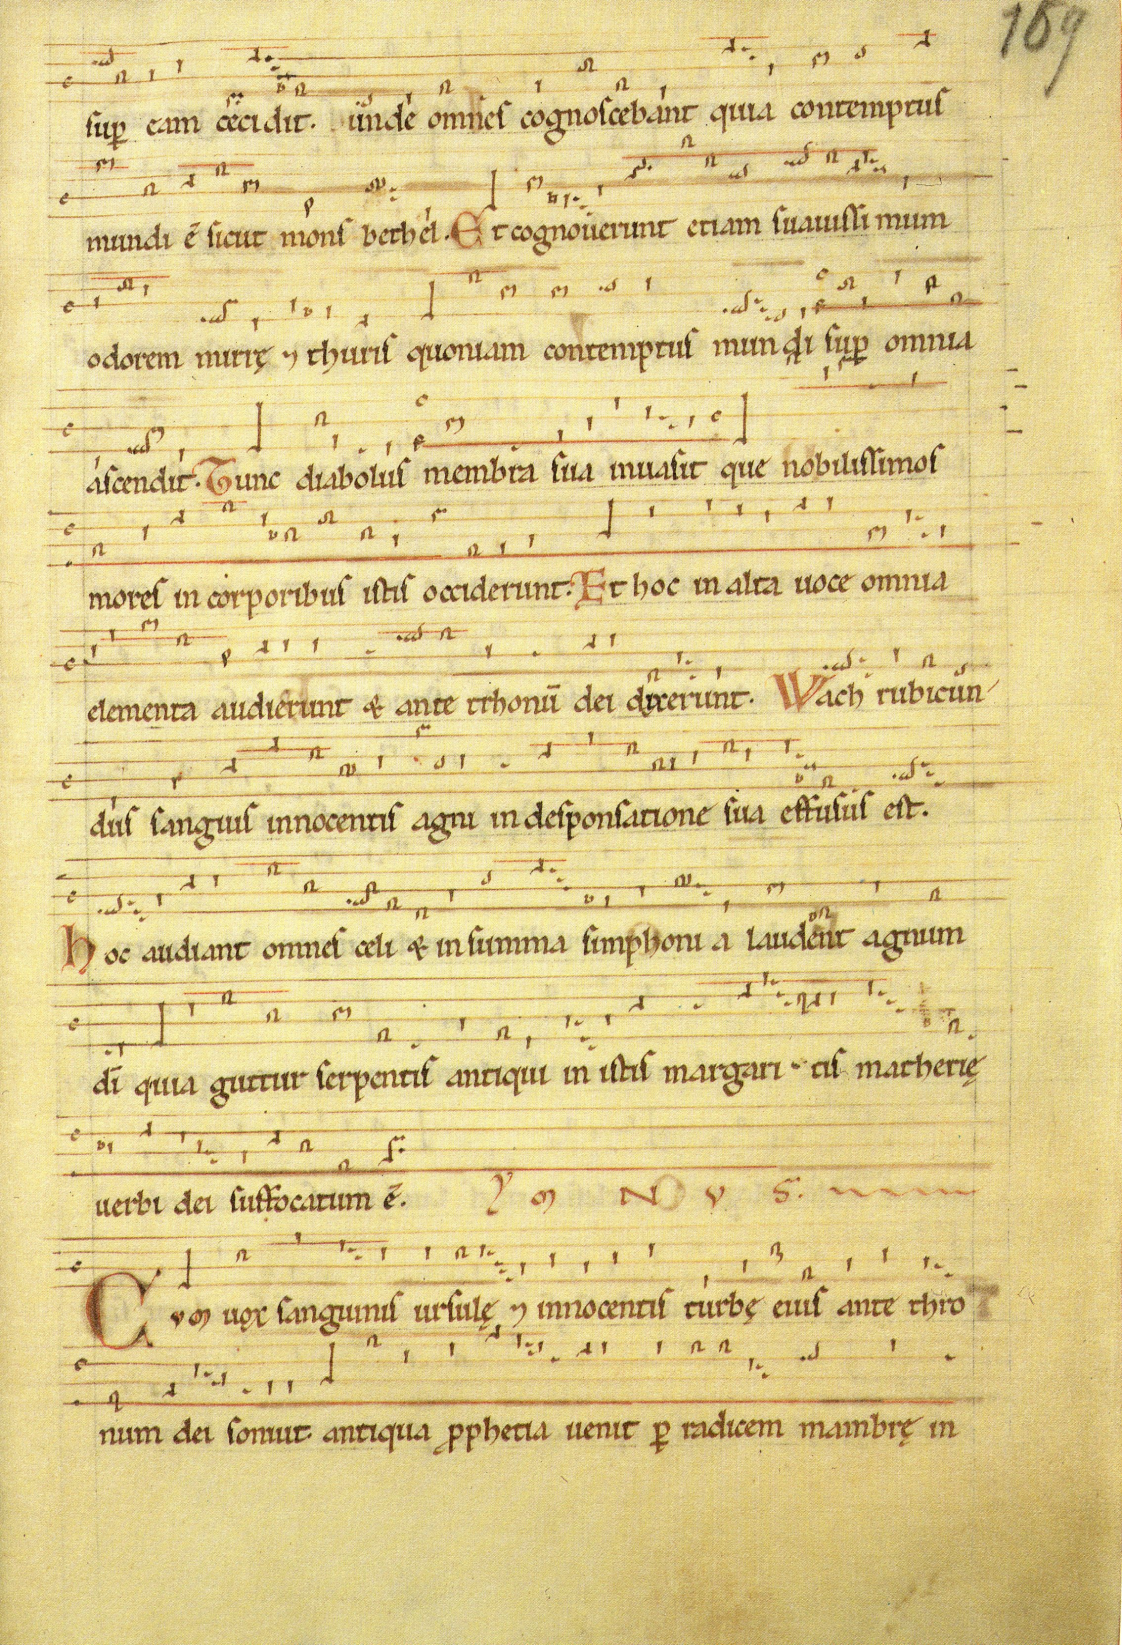 169
sup eam cecidit. unde omnes cognoscebant quia contemptus
mundi ē sicut mons bethel. Et cognouerunt etiam suauissimum
odorem mirrę ⁊ thuris quoniam contemptus mundi sup omnia
ascendit. Tunc diabolus membra sua inuasit que nobilissimos
mores in corporibus istis occiderunt. Et hoc in alta uoce omnia
elementa audierunt & ante trhonū dei dixerunt. Wach rubicun
dus sanguis innocentis agni in desponsatione sua effusus est.
hoc audiant omnes celi & in summa simphonia laudent agnum
dī quia guttur serpentis antiqui in istis margaritis matherię
uerbi dei suffocatum ē. YmNVS.
Cvm uox sanguinis ursulę ⁊ innocentis turbę eius ante thro
num dei sonuit antiqua ꝓphetia uenit ꝑ radicem mambrę in